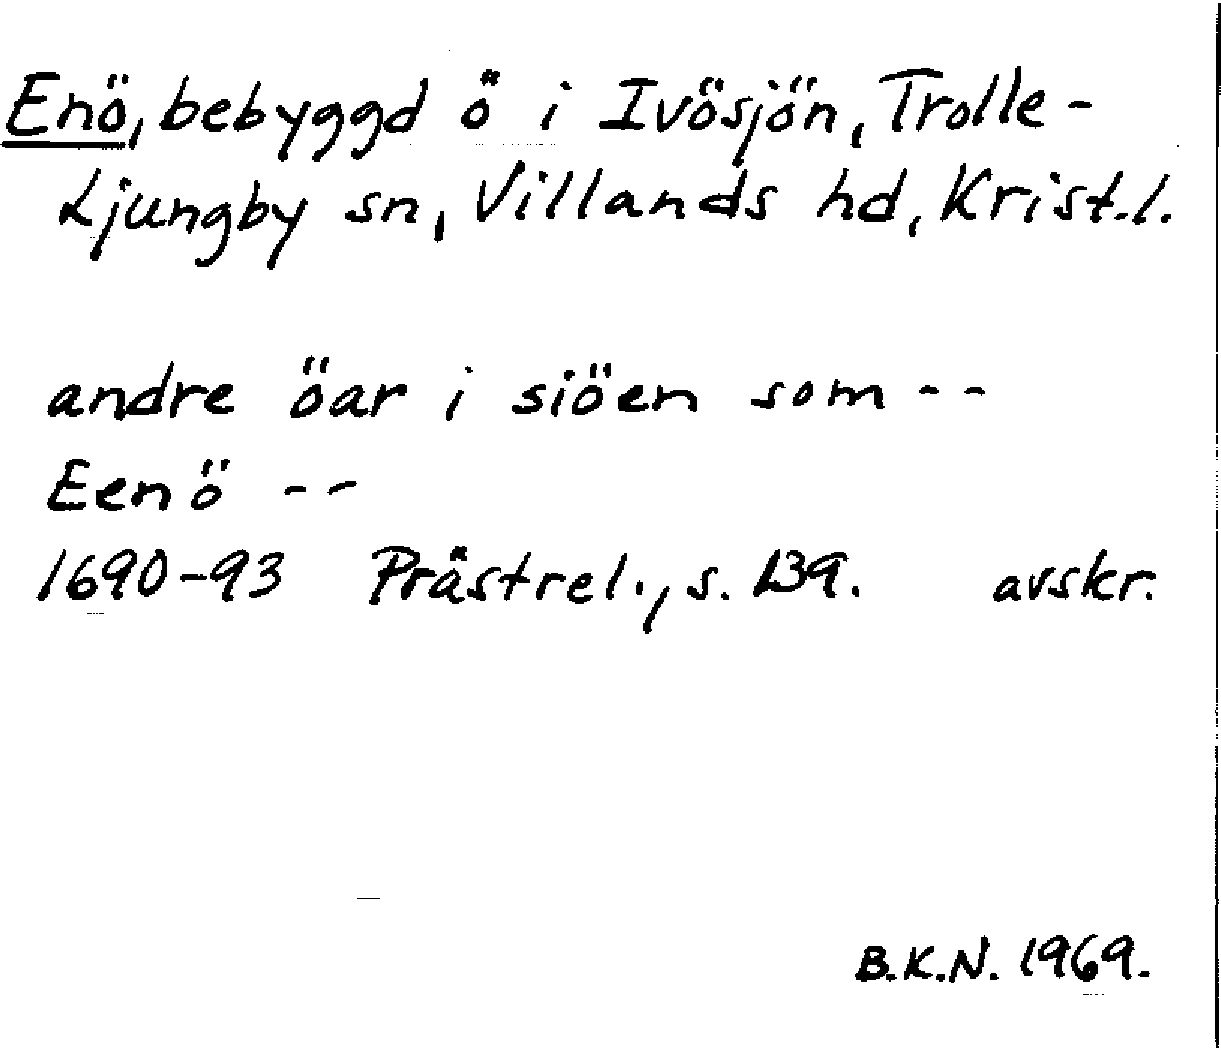 Enö, bebyggd ö i Ivösjön, Trolle-
Ljungby sn, Villands hd, Krist.l.
andre öar i siöen som --
Eenö --
1690-93 Prästrel., s. 139. avskr.
B.K.N. 1969.